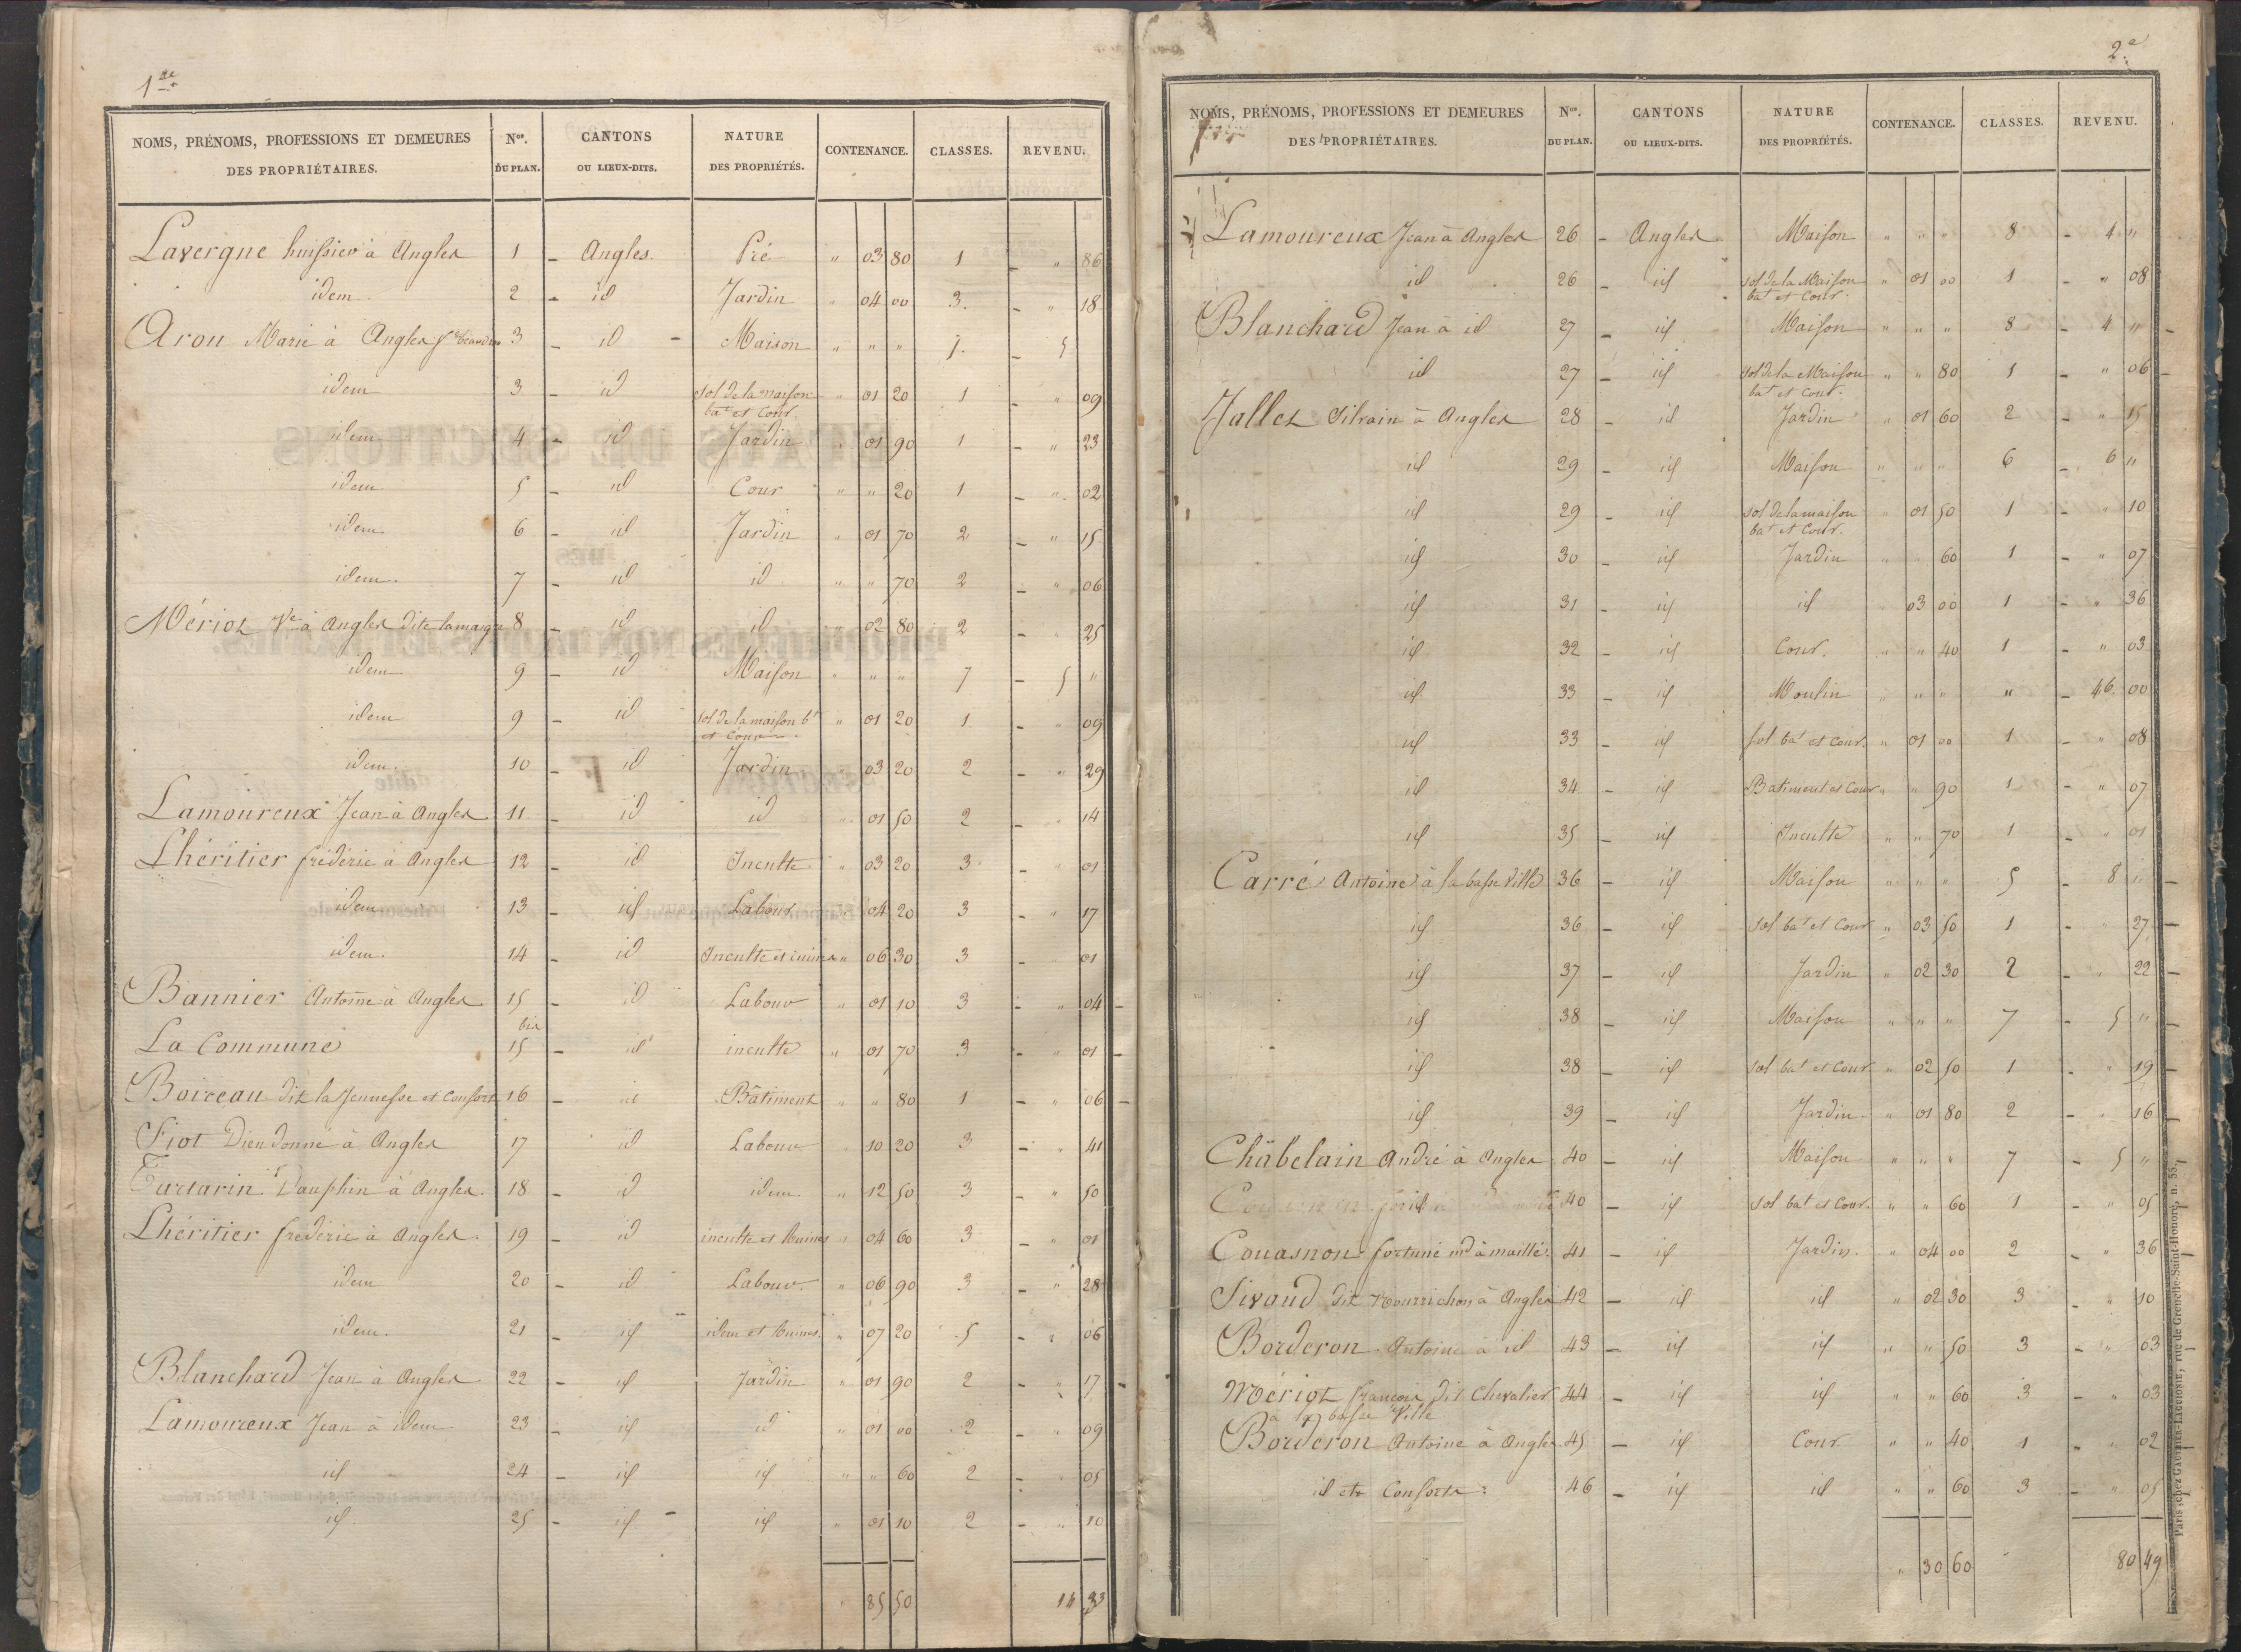 1re
NOMS, PRÉNOMS, PROFESSIONS ET DEMEURES DES PROPRIÉTAIRES. Nos. DU PLAN. CANTONS OU LIEUX-DITS. NATURE DES PROPRIÉTÉS. CONTENANCE. CLASSES. REVENU.
Lavergne huissier à Angles 1 - Angles. Pré " 03 80 1 - " 86
idem 2 - id Jardin " 04 00 3. - " 18
Arou Marie à Angles 3 - id - Maison " " " 7. - 5
idem 3 - id sol de la maison " 01 20 1 - " 09
bat et Cour.
idem 4 - id Jardin " 01 90 1 - " 23
idem 5 - id Cour " " 20 1 - " 02
idem 6 - id Jardin " 01 70 2 - " 15
idem 7 - id id " " 70 2 - " 06
Mériot Ve à Angles dite lamaigre 8 - id id " 02 80 2 - " 25
idem 9 - id Maison " " " 7 - 5 "
idem 9 - id sol de la maison bt " 01 20 1 - " 09
et Cour
idem. 10 - id Jardin " 03 20 2 - " 29
Lamoureux Jean à Angles 11 - id id " 01 50 2 - " 14
Lhéritier frédéric à Angles 12 - id Inculte " 03 20 3 - " 01
idem 13 - id Labour " 04 20 3 - " 17
idem. 14 - id Inculte et ruines " 06 30 3 - " 01
Bannier Antoine à Angles 15 - id Labour " 01 10 3 - " 04
bis
La Commune 15 - id inculte " 01 70 3 - " 01
Boireau dit la Jeunesse et Consorts 16 - id Bâtiment " " 80 1 - " 06
Fiot Dieudonné à Angles 17 id Labour " 10 20 3 - " 41
Dauphin à Angles. 18 - id idem " 12 50 3 - " 50
Lhéritier frédéric à Angles. 19 - id inculte et Ruines " 04 60 3 - " 01
idem 20 - id Labour. " 06 90 3 - " 28
idem. 21 - id idem et Ruines. " 07 20 5 - " 06
Blanchard Jean à Angles 22 - id Jardin " 01 90 2 - " 17
Lamoureux Jean à idem 23 - id id " 01 00 2 - " 09
id 24 - id id " " 60 2 - " 05
id 25 - id id " 01 10 2 - " 10
" 85 50 14 33
2e
NOMS, PRÉNOMS, PROFESSIONS ET DEMEURES DES PROPRIÉTAIRES. Nos. DU PLAN. CANTONS OU LIEUX-DITS. NATURE DES PROPRIÉTÉS. CONTENANCE. CLASSES. REVENU.
Lamoureux Jean à Angles 26 - Angles Maison " " " 8 - 4 "
id 26 - id sol de la Maison " 01 00 1 - " 08
bat et Cour.
Blanchard Jean à id 27 - id Maison " " " 8 - 4 "
id 27 - id sol de la Maison " " 80 1 - " 06
bat et Cour.
Jallet Silvain à Angles 28 - id Jardin " 01 60 2 - " 15
id 29 - id Maison " " " 6 - 6 "
id 29 - id sol de la maison " 01 50 1 - " 10
bat et Cour.
id 30 - id Jardin " " 60 1 - " 07
id 31 - id id 03 00 1 - " 36
id 32 - id Cour. " " 40 1 - " 03
id 33 - id Moulin " " " " - 46 00
id 33 - id sol bat et Cour. " 01 00 1 - " 08
id 34 - id Batiment et Cour " " 90 1 - " 07
id 35 - id Inculte " " 70 1 - " 01
Carré Antoine à la basse Ville 36 - id Maison " " " 5 - 8 "
id 36 - id sol bat et Cour " 03 50 1 - " 27
id 37 - id Jardin " 02 30 2 - " 22
id 38 - id Maison " " " 7 - 5 "
id 38 - id sol bat et Cour. " 02 50 1 - " 19
id 39 - id Jardin. " 01 80 2 - " 16
Châbelain André à Angles 40 - id Maison " " " 7 - 5 "
40 - id sol bat et Cour. " " 60 1 - " 05
Couasnon fortuné md à maillé. 41 - id Jardin. " 04 00 2 - " 36
Sivaud dit Nourrichon à Angles 42 - id id " 02 30 3 - " 10
Borderon Antoine à id 43 - id id " " 50 3 - " 03
Mériot françois dit Chevalier 44 - id id " " 60 3 - " 03
à la basse Ville
Borderon Antoine à Angles 45 - id Cour " " 40 1 - " 02
id et Consorts. 46 - id id " " 60 3 - " 05
" 30 60 80 49